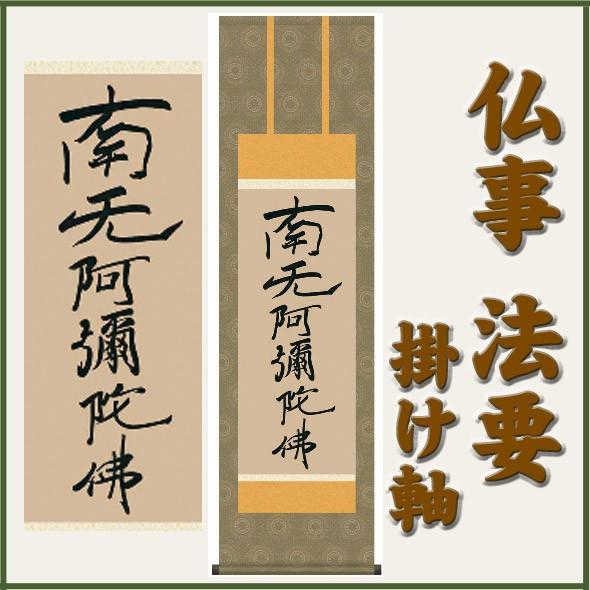 仏事 法要
掛け軸
南无阿彌陀佛
南无阿彌陀佛